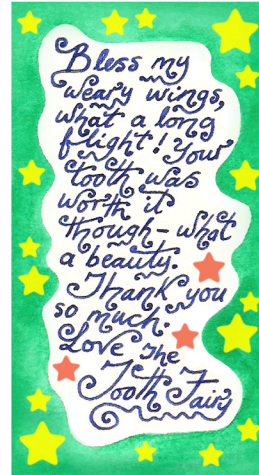 Bless my
weary wings,
what a long
flight! Your
tooth was
worth it
though - what
a beauty.
Thank you
so much.
Love The
Tooth Fairy